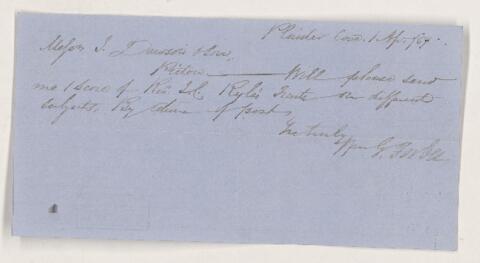 Plaister Cove, 1 Ap. /67.
Messrs J. Dawson & Son,
Pictou — Will please send
me 1 Score of Rev. J.C. Ryle's Tracts on different
subjects, By return of post,
Yrs truly
Wm G. Forbes